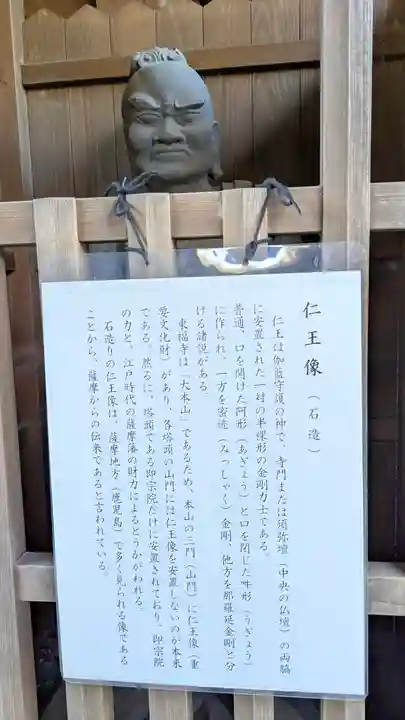 仁王像（石造）
仁王は伽藍守護の神で、寺門または須弥壇（中央の仏壇）の両脇
に安置された一対の半裸形の金剛力士である。
普通、口を開けた阿形（あぎょう）と口を閉じた吽形（うぎょう）
に作られ、一方を密迹（みっしゃく）金剛、他方を那羅延金剛と分
ける諸説がある。
東福寺は「大本山」であるため、本山の三門（山門）に仁王像（重
要文化財）があり、各塔頭の山門には仁王像を安置しないのが本来
である。然るに、塔頭である即宗院だけに安置されており、即宗院
の力と、江戸時代の薩摩藩の財力によるとうかがわれる。
石造りの仁王像は、薩摩地方（鹿児島）で多く見られる像である
ことから、薩摩からの伝来であると言われている。